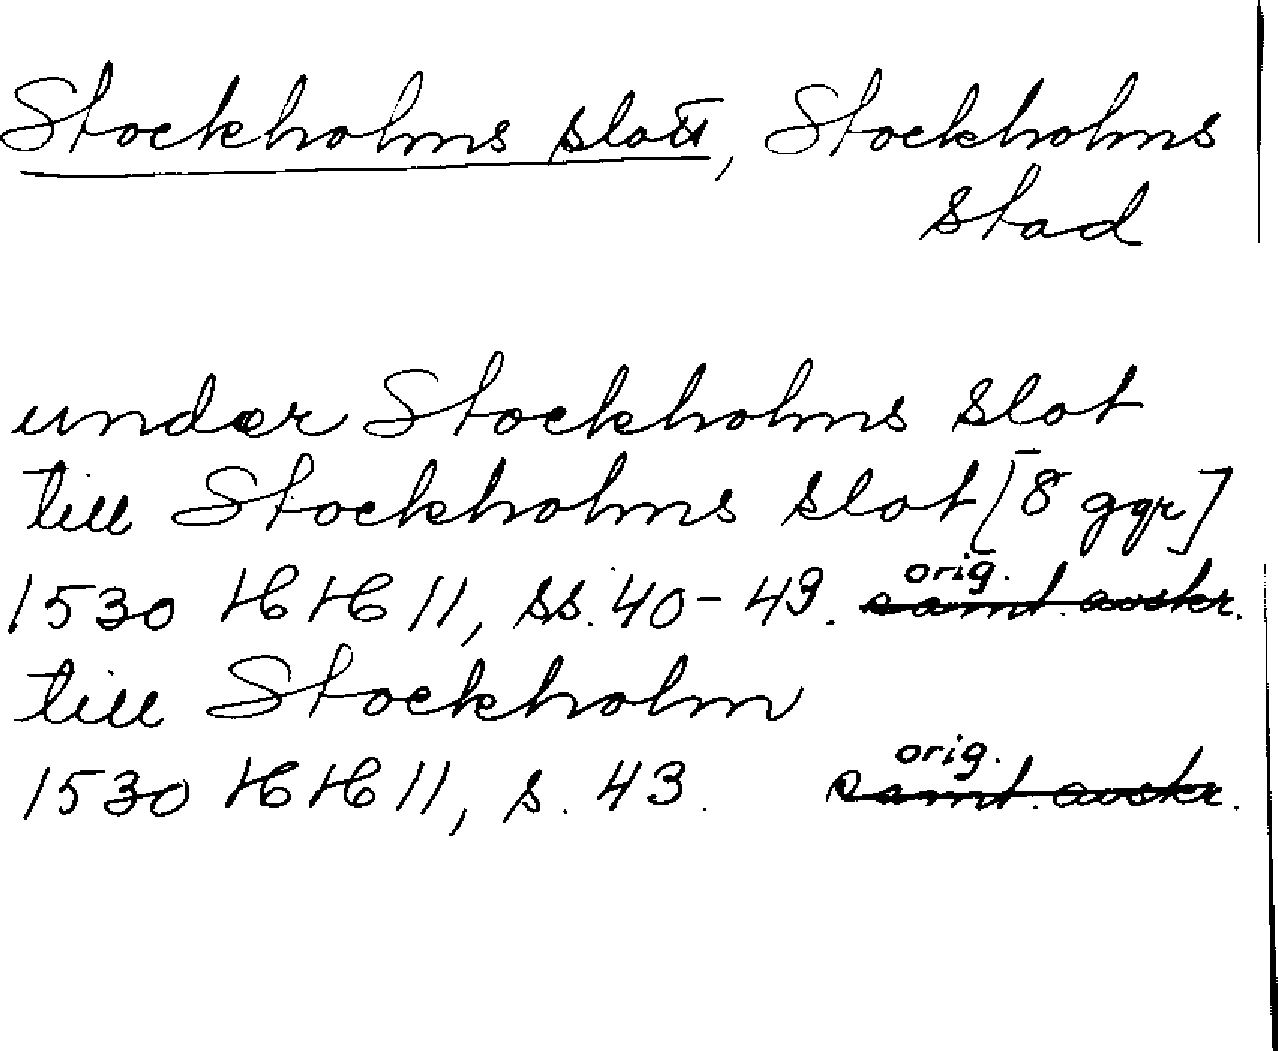 Stockholms slott, Stockholms
stad
under Stockholms slot
till Stockholms slot [8 ggr]
1530 HH 11, ss. 40-43. orig. samt. avskr.
till Stockholm
1530 HH 11, s. 43. orig. samt. avskr.